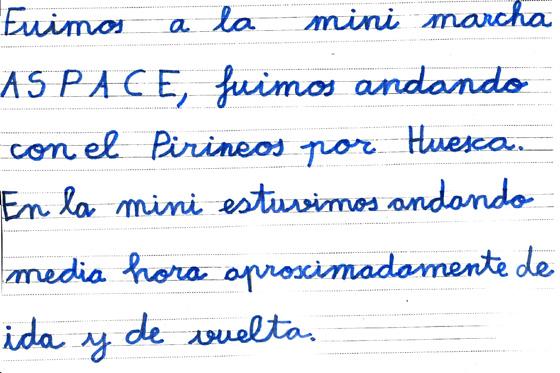 Fuimos a la mini marcha
ASPACE, fuimos andando
con el Pirineos por Huesca.
En la mini estuvimos andando
media hora aproximadamente de
ida y de vuelta.